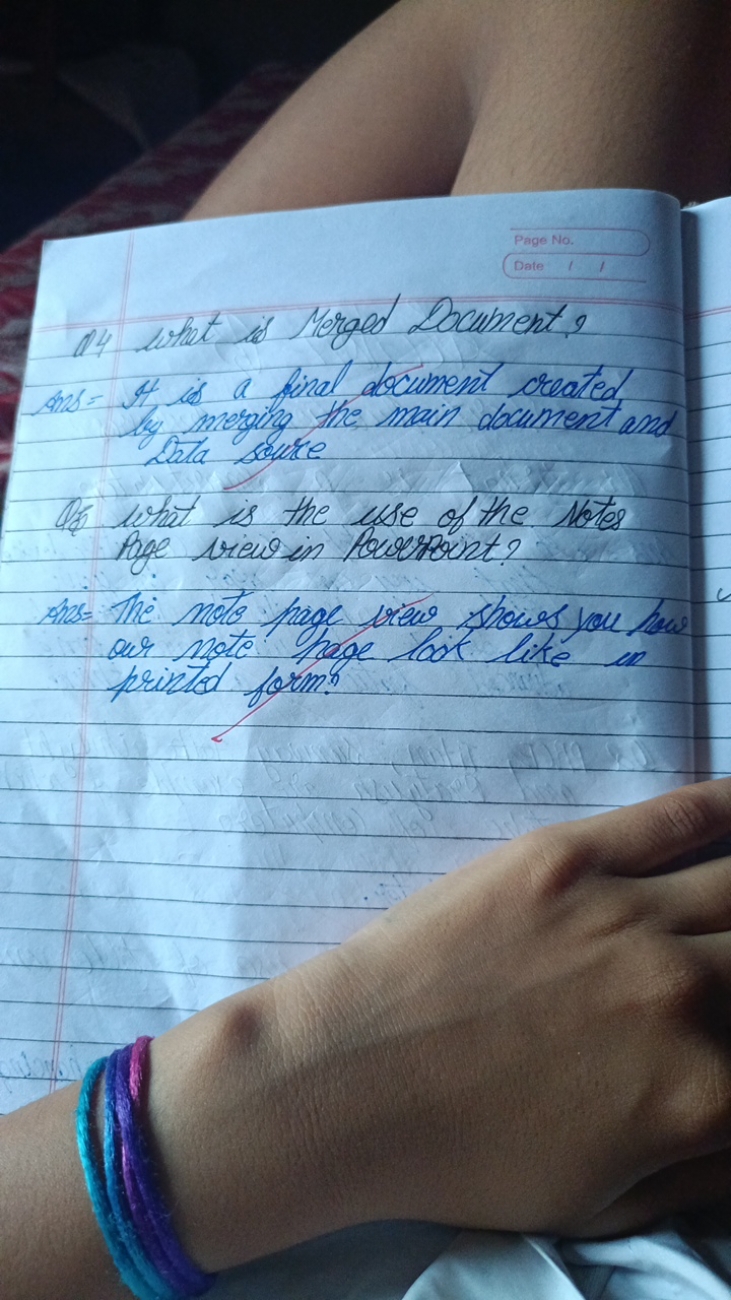 Page No.
Date / /
Q4 What is Merged Document?
Ans= It is a final document created
by merging the main document and
Data source
Q5 What is the use of the Notes
Page view in PowerPoint?
Ans= The note page view shows you how
our note page look like in
printed form?